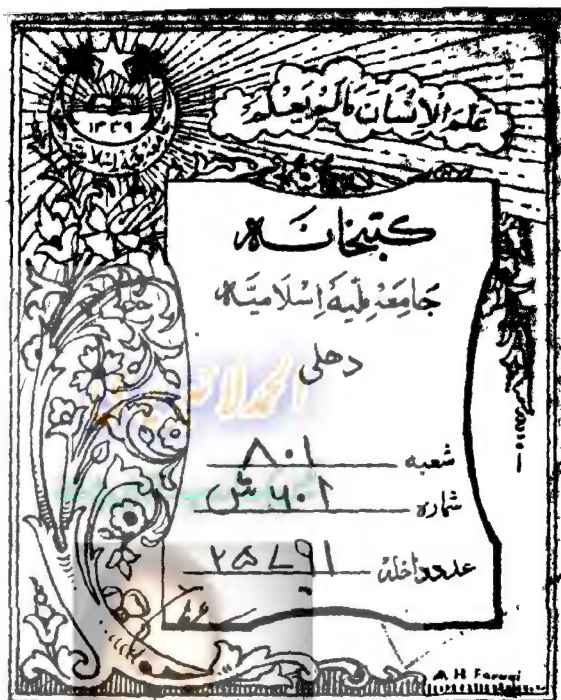 عَلَّمَ الْاِنْسَانَ مَالَمْ يَعْلَمْ
۱۳۳۹
کتبخانہ
جَامِعَہ مِلّیَہ اِسْلَامِیَہ
دھلی
شعبہ ۸۰۱
شمارہ ۶۰۱ ش
عدد داخلہ ۲۵۷۹۱
A H Faruqi